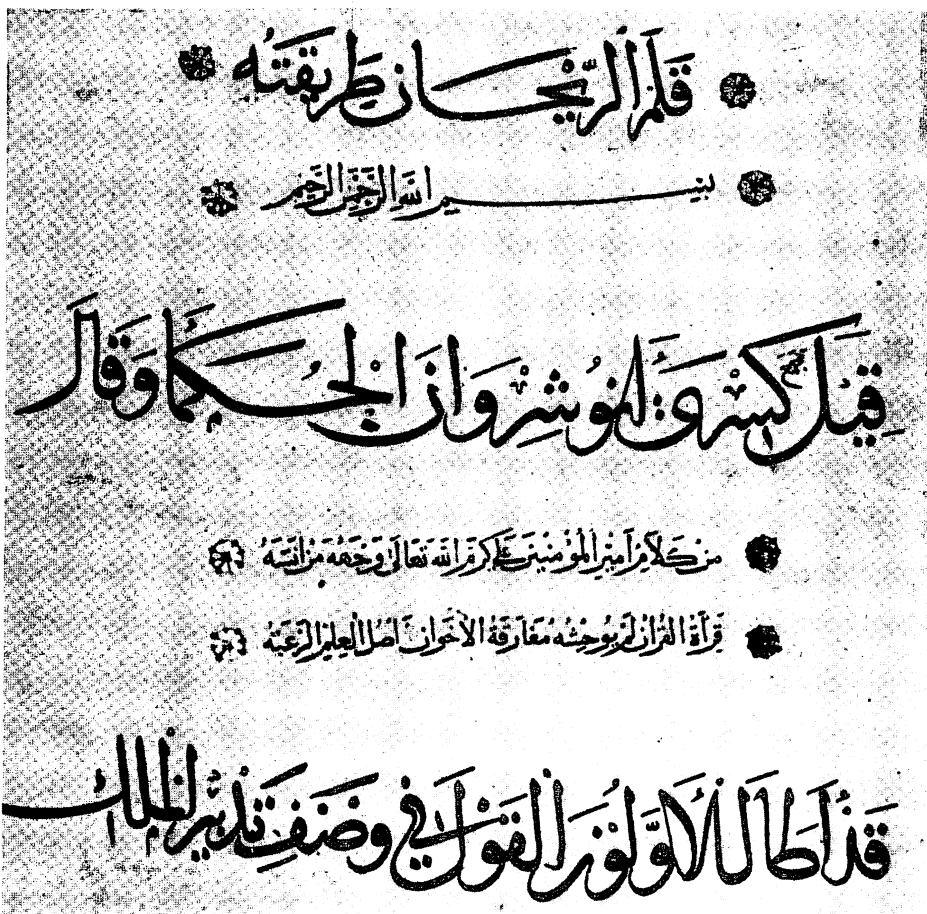 قلم الريحان طريقته
بسم الله الرحمن الرحيم
قيل جمع كسرى انوشروان الحكما وقال
من كلام امير المؤمنين علي كرم الله تعالى وجهه من انسه
قرأة القران لم يوحشه مفارقة الاخوان اصل العلم الرغبة
قد اطال الاولون القول في وصف تدبير الملك